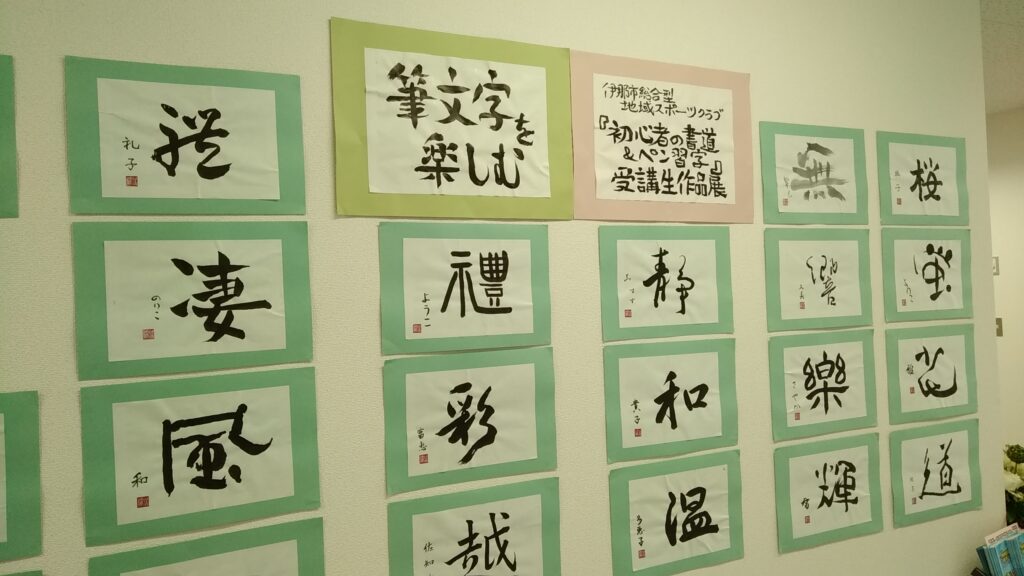 筆文字を
楽しむ
伊那市総合型
地域スポーツクラブ
『初心者の書道
&ペン習字』
受講生作品展
礼子
凄
のりこ
風
和
禮
ようこ
彩
越
佐知
静
和
貴子
温
無
響
樂
さやか
輝
桜
蛍
花
道